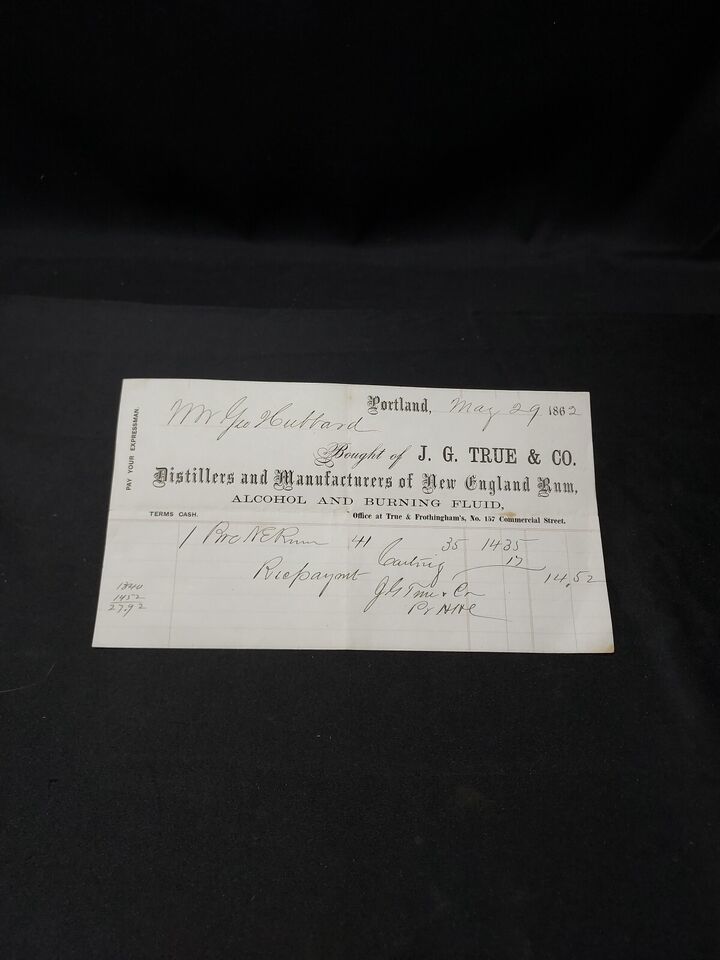 PAY YOUR EXPRESSMAN.
Portland, May 29 1862
Mr Geo Hubbard
Bought of J. G. TRUE & CO.
Distillers and Manufacturers of New England Rum,
ALCOHOL AND BURNING FLUID,
TERMS CASH. Office at True & Frothingham's, No. 157 Commercial Street.
1 Brl N E Rum 41 35 14 35
Carting 17 14,52
Recpaymt
J G True & Co
Pr
1340
1452
27.92